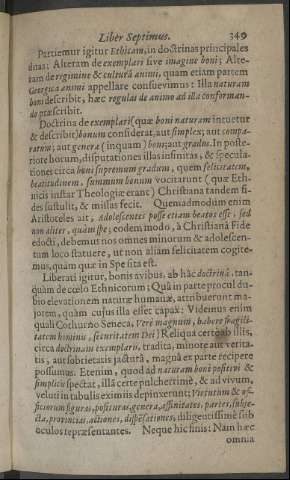 Liber Septimus. 349
Partiemur igitur Ethicam, in doctrinas principales
duas; Alteram de exemplari sive imagine boni; Alte-
ram de regimine & culturâ animi, quam etiam partem
Georgica animi appellare consuevimus: Illa naturam
boni describit, hæc regulas de animo ad illa conforman-
do præscribit.
Doctrina de exemplari (quæ boni naturam intuetur
& describit) bonum considerat, aut simplex; aut compa-
ratum; aut genera (inquam) boni; aut gradus. In poste-
riore horum, disputationes illas infinitas, & specula-
tiones circa boni supremum gradum, quem felicitatem,
beatitudinem, summum bonum vocitarunt (quæ Eth-
nicis instar Theologiæ erant) Christiana tandem fi-
des sustulit, & missas fecit. Quemadmodum enim
Aristoteles ait, Adolescentes posse etiam beatos esse, sed
non aliter, quàm spe; eodem modo, à Christianâ Fide
edocti, debemus nos omnes minorum & adolescen-
tum loco statuere, ut non aliam felicitatem cogite-
mus, quàm quæ in Spe sita est.
Liberati igitur, bonis avibus, ab hâc doctrinâ, tan-
quàm de cœlo Ethnicorum; Quâ in parte procul du-
bio elevationem naturæ humanæ, attribuerunt ma-
jorem, quàm cujus illa esset capax: Videmus enim
quali Cothurno Seneca, Verè magnum, habere fragili-
tatem hominis, securitatem Dei) Reliqua certè ab illis,
circa doctrinam exemplaris, tradita, minore aut verita-
tis, aut sobrietatis jacturâ, magnâ ex parte recipere
possumus. Etenim, quod ad naturam boni positivi &
simplicis spectat, illâ certè pulcherrimè, & ad vivum,
veluti in tabulis eximiis depinxerunt; Virtutum & of-
ficiorum figuras, posituras, genera, affinitates, partes, subje-
cta, provincias, actiones, dispensationes, diligentissimè sub
oculos repræsentantes. Neque hìc finis: Nam hæc
omnia